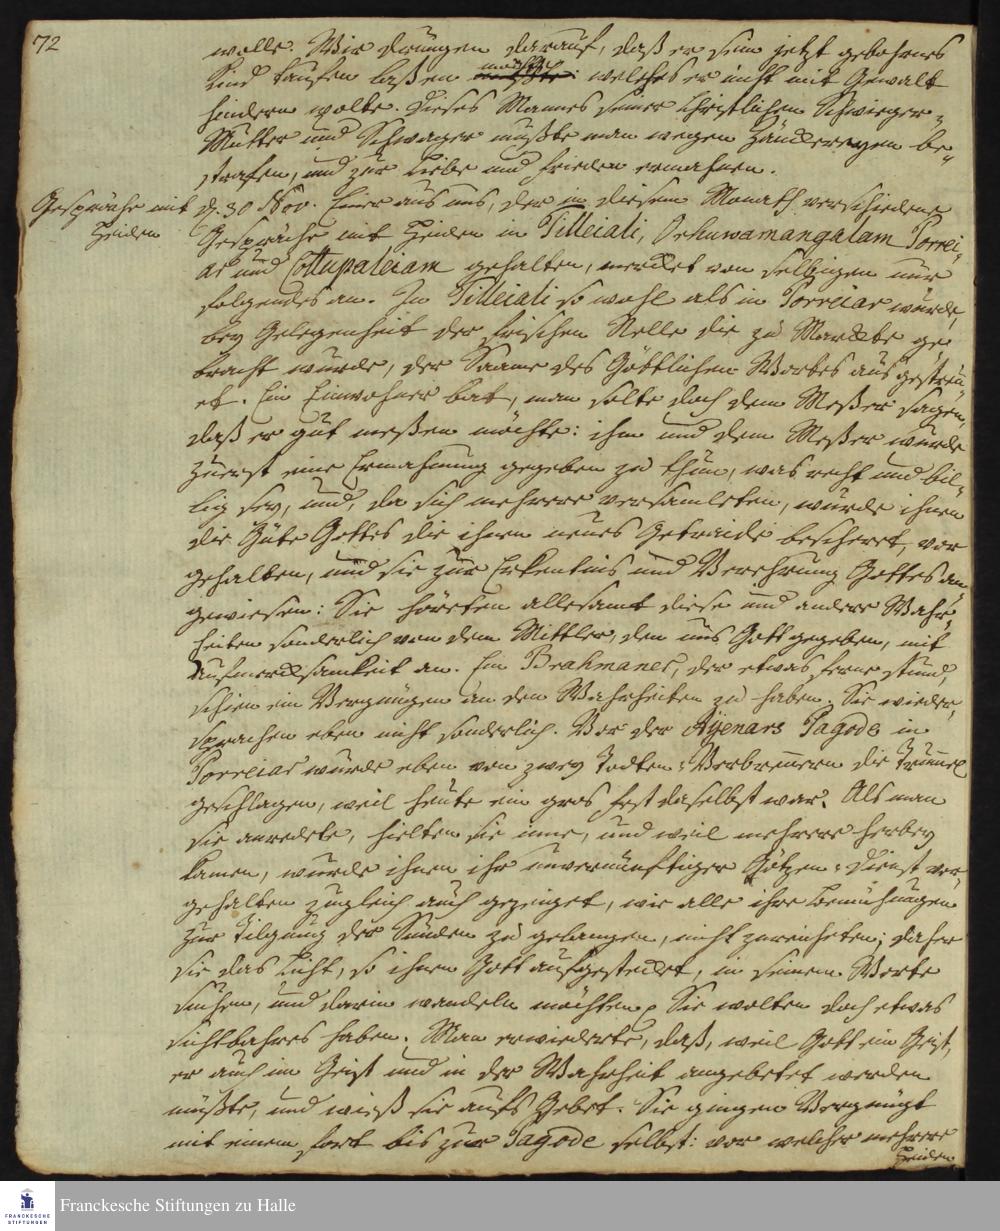 72
wolle. Wir drungen darauf, daß er sein jetzt gebohrnes
Kind taufen laßen möchte: welches er nicht mit Gewalt
hindern wolte. Dieses Mannes seiner Christlichen Schwieger-
Mutter und Schwager mußte man wegen Zänckereyen be-
strafen, und zur Liebe und Frieden ermahnen.
Gespräche mit
Heiden
d. 30 Nov. Einer aus uns, der in diesem Monath verschiedene
Gespräche mit Heiden in Tilleiali, Oehuwamangalam Porrei-
ar und Cottupaleiam gehalten, merket von selbigen nur
folgendes an. In Tilleiali so wohl als in Porreiar wurde,
bey Gelegenheit der frischen Nelle die zu Marckte ge
bracht wurde, der Saame des Göttlichen Wortes ausgestreu
et. Ein Einwohner bat, man solte doch dem Meßer sagen,
daß er gut meßen möchte: ihm und dem Meßer wurde
zuerst eine Ermahnung gegeben zu thun, was recht und bil-
lig sey, und, da sich mehrere versamleten, wurde ihnen
die Güte Gottes die ihnen neues Getraide bescheret, vor
gehalten, und sie zur Erkentnis und Verehrung Gottes an
gewiesen: Sie höreten allesamt diese und andere Wahr-
heiten sonderlich von dem Mittler, den uns Gott gegeben, mit
Aufmercksamkeit an. Ein Brahmaner, der etwas ferne stund,
schien ein Vergnügen an den Wahrheiten zu haben. Sie wieder-
sprachen eben nicht sonderlich. Vor der Ayenars Pagode in
Porreiar wurde eben von zwey Todten-Verbrennern die Trummel
geschlagen, weil heute ein gros Fest daselbst war. Als man
sie anredete, hielten sie inne, und weil mehrere herbey
kamen, wurde ihnen ihr unvernünftiger Götzen-Dienst vor
gehalten zugleich auch gezeiget, wie alle ihre Bemühungen
zur Tilgung der Sünden zu gelangen, nicht zureicheten; daher
sie das Licht, so ihnen Gott aufgestecket, in seinem Worte
suchen, und darin wandeln möchten. Sie wolten doch etwas
sichtbahres haben. Man erwiederte, daß, weil Gott ein Geist,
er auch im Geist und in der Wahrheit angebetet werden
müßte, und wieß sie aufs Gebet. Sie gingen Vergnügt
mit einem fort bis zur Pagode selbst: vor welcher mehrere
Heiden
Franckesche Stiftungen zu Halle
FRANCKESCHE
STIFTUNGEN